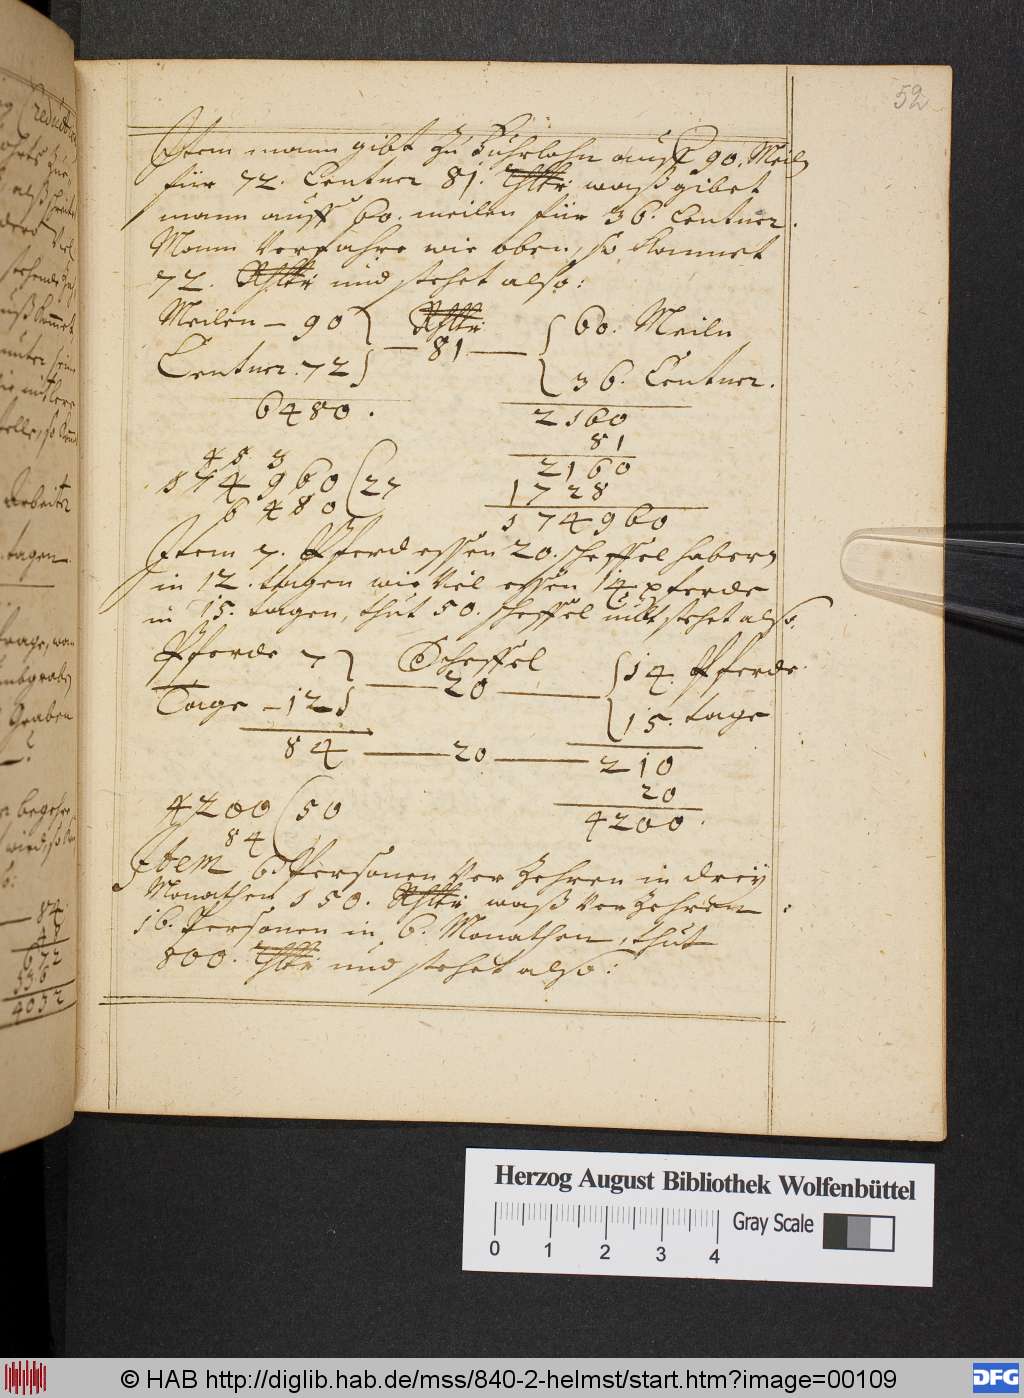 52
Item mann gibt zu Fuhrlohn auff 90. Meiln
für 72. Centner 81. Rthlr waß gibet
mann auff 60. meilen für 36. Centner.
Mann Verfahre wie oben, so kommet
72. Rthlr und stehet also:
Meilen – 90 Rthlr 60. Meiln
Centner. 72 — 81 — 36. Centner.
6480. 2160
81
4 5 3 2160
174960 ( 27 1728
6 480 174960
Item 7. Pferd essen 20. scheffel habern
in 12. tagen wie viel essen 14 pferde
in 15. tagen, thut 50. scheffel undt stehet also.
Pferde 7 Scheffel 14. Pferde.
Tage – 12 — 20 — 15. tage
84 — 20 — 210
20
4200 ( 50 4200.
84
Item 6 Personen Verzehren in dreÿ
Monathen 150. Rthlr waß Verzehren
16. Personen in 6. Monathen, thut
800. Rthlr und stehet also:
84.
48
672
336
4032
Herzog August Bibliothek Wolfenbüttel
Gray Scale
0 1 2 3 4
© HAB http://diglib.hab.de/mss/840-2-helmst/start.htm?image=00109
DFG